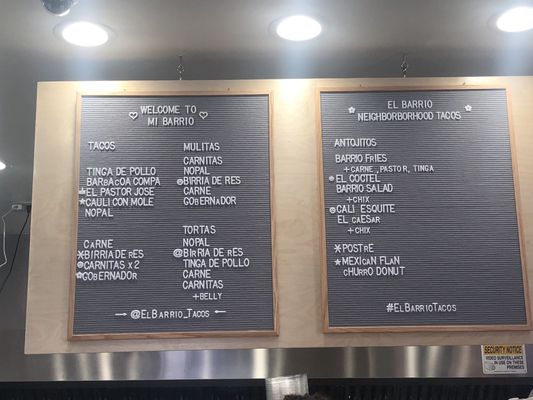 WELCOME TO
MI BARRIO
TACOS
TINGA DE POLLO
BARBACOA COMPA
EL PASTOR JOSE
CAULI CON MOLE
NOPAL
CARNE
BIRRIA DE RES
CARNITAS x2
GOBERNADOR
MULITAS
CARNITAS
NOPAL
BIRRIA DE RES
CARNE
GOBERNADOR
TORTAS
NOPAL
BIRRIA DE RES
TINGA DE POLLO
CARNE
CARNITAS
+BELLY
@ELBARRIO_TACOS
EL BARRIO
NEIGHBORBORHOOD TACOS
ANTOJITOS
BARRIO FRIES
+CARNE, PASTOR, TINGA
EL COCTEL
BARRIO SALAD
+CHIX
CALI ESQUITE
EL CAESAR
+CHIX
POSTRE
MEXICAN FLAN
CHURRO DONUT
#ELBARRIOTACOS
SECURITY NOTICE
VIDEO SURVEILLANCE
IN USE ON THESE
PREMISES